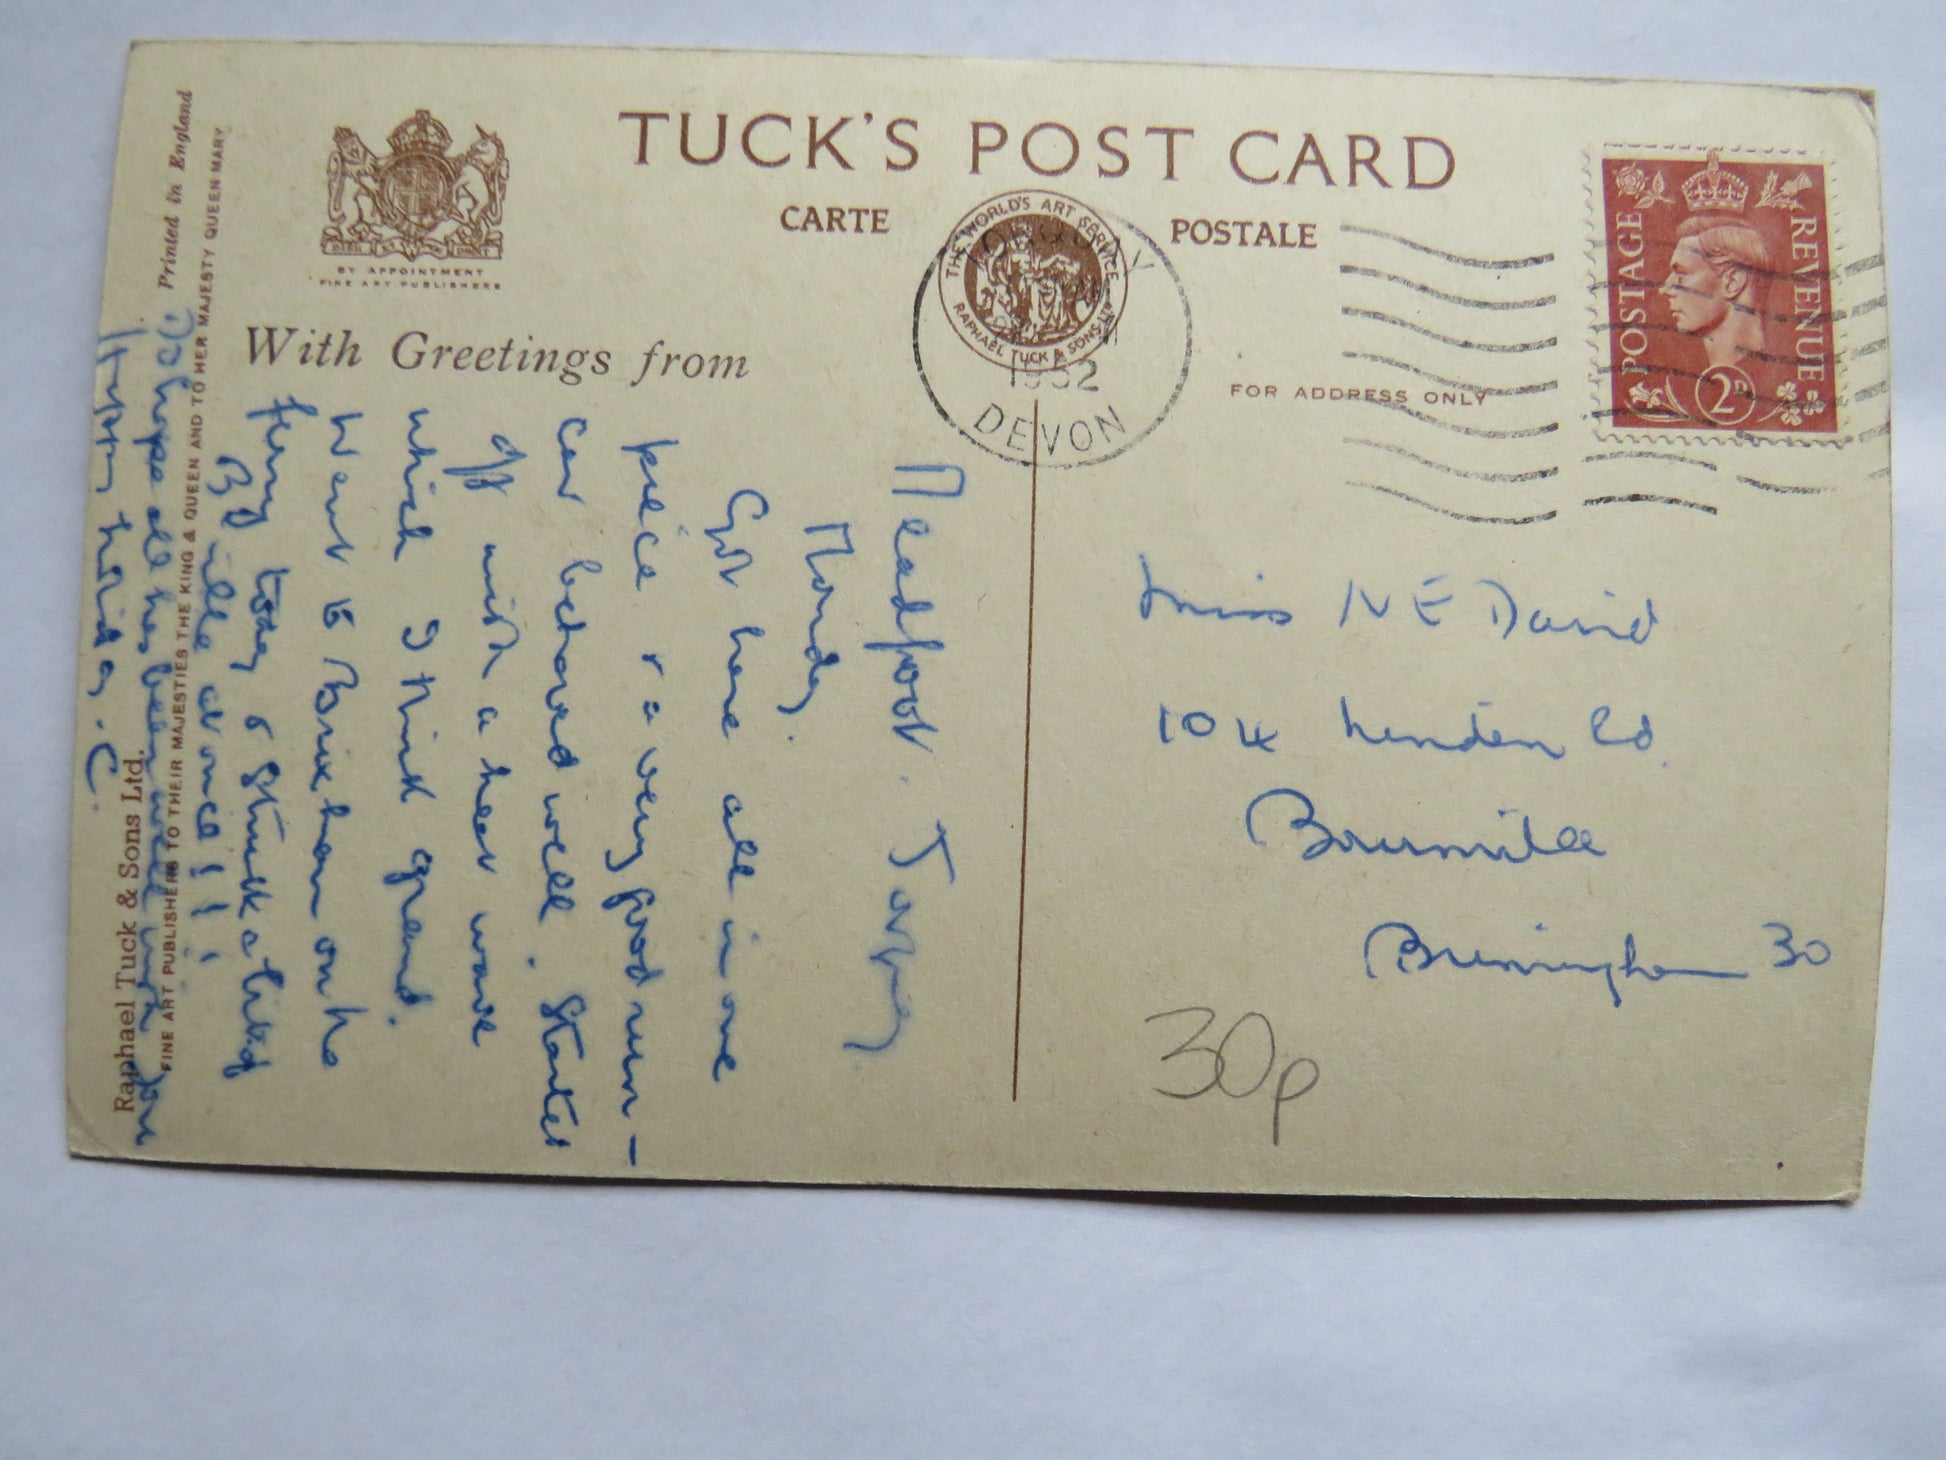 TUCK'S POST CARD
CARTE POSTALE
THE WORLD'S ART SERVICE
RAPHAEL TUCK & SONS LTD
BY APPOINTMENT
FINE ART PUBLISHERS
With Greetings from
FOR ADDRESS ONLY
POSTAGE REVENUE
2D
TORQUAY
1952
DEVON
Meadfoot. Torquay
Monday.
Got here all in one
piece & a very good run –
car behaved well. Started
off with a heat wave
which I think grand.
Went to Brixham on the
ferry today & struck a bit of
B'ville at once!!!!
Do hope all has been well with you
Happy holiday. C.
Miss N E David
104 Linden Rd
Bournville
Birmingham 30
30p
Printed in England
FINE ART PUBLISHERS TO THEIR MAJESTIES THE KING & QUEEN AND TO HER MAJESTY QUEEN MARY
Raphael Tuck & Sons Ltd.